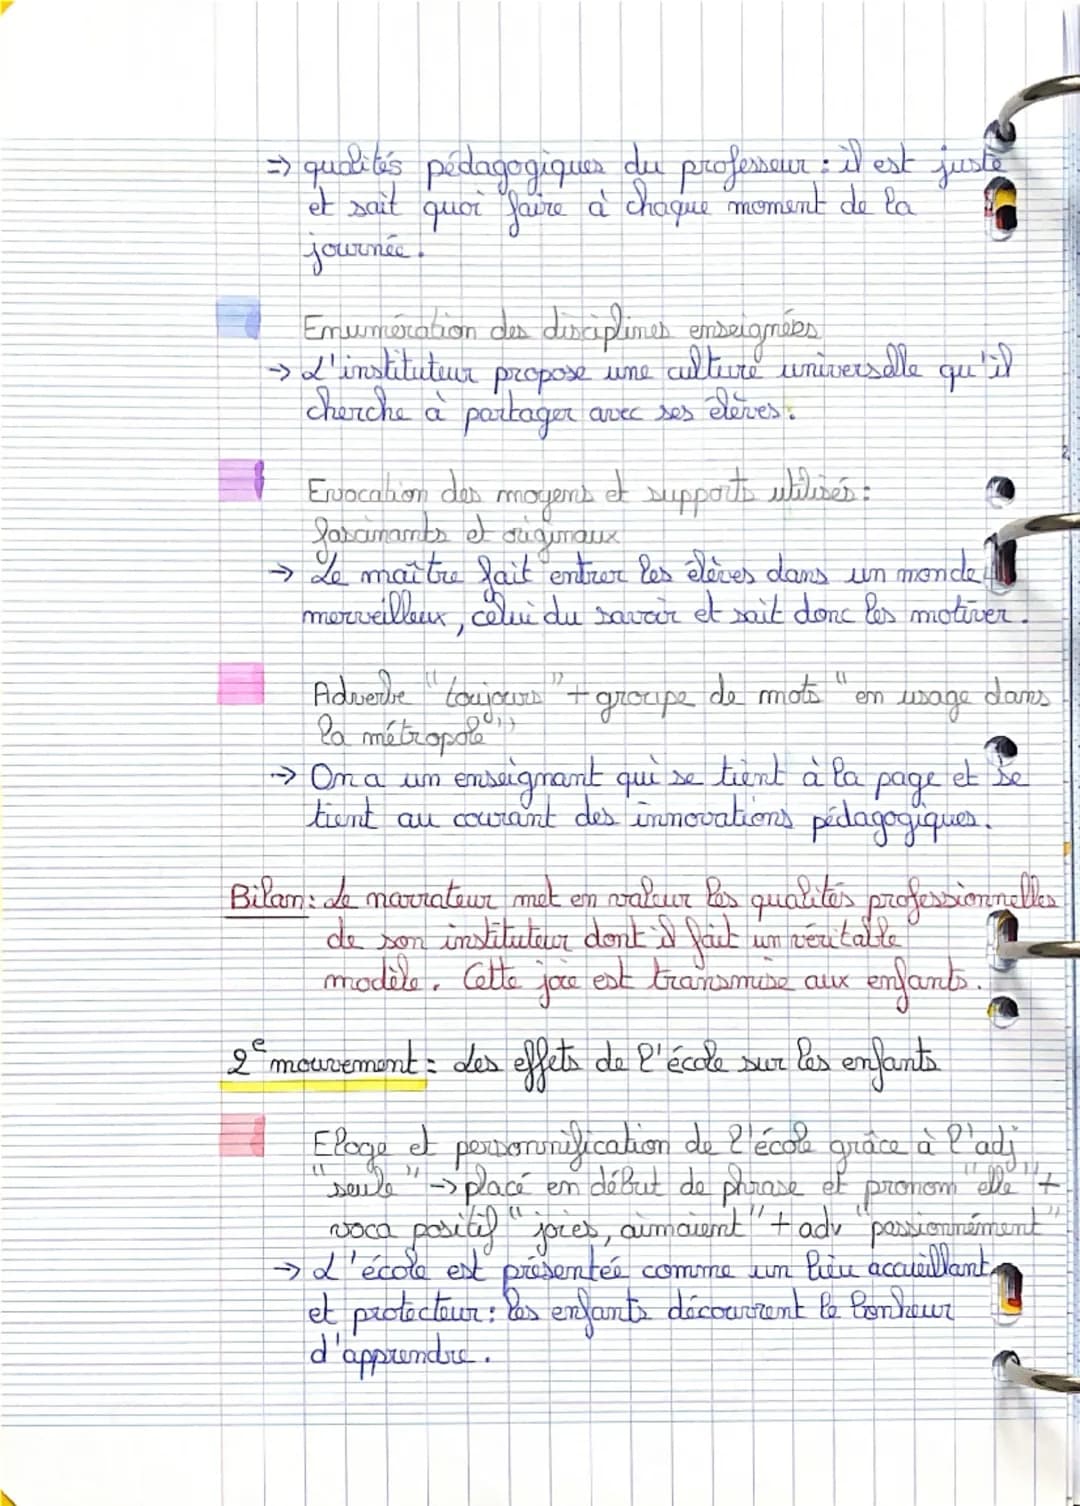 => qualités pédagogiques du professeur : il est juste
et sait quoi faire à chaque moment de la
journée.
Enumération des disciplines enseignées
-> L'instituteur propose une culture universelle qu'il
cherche à partager avec ses élèves.
Evocation des moyens et supports utilisés :
fascinants et originaux
-> Le maître fait entrer les élèves dans un monde
merveilleux, celui du savoir et sait donc les motiver.
Adverbe "toujours" + groupe de mots "en usage dans
la métropole"
-> On a un enseignant qui se tient à la page et se
tient au courant des innovations pédagogiques.
Bilan : Le narrateur met en valeur les qualités professionnelles
de son instituteur dont il fait un véritable
modèle. Cette joie est transmise aux enfants.
2e mouvement : des effets de l'école sur les enfants
Eloge et personnification de l'école grâce à l'adj
"seule" -> placé en début de phrase et pronom "elle" +
voca positif "joies, aimaient" + adv "passionnément"
-> L'école est présentée comme un lieu accueillant
et protecteur : les enfants découvrent le bonheur
d'apprendre.